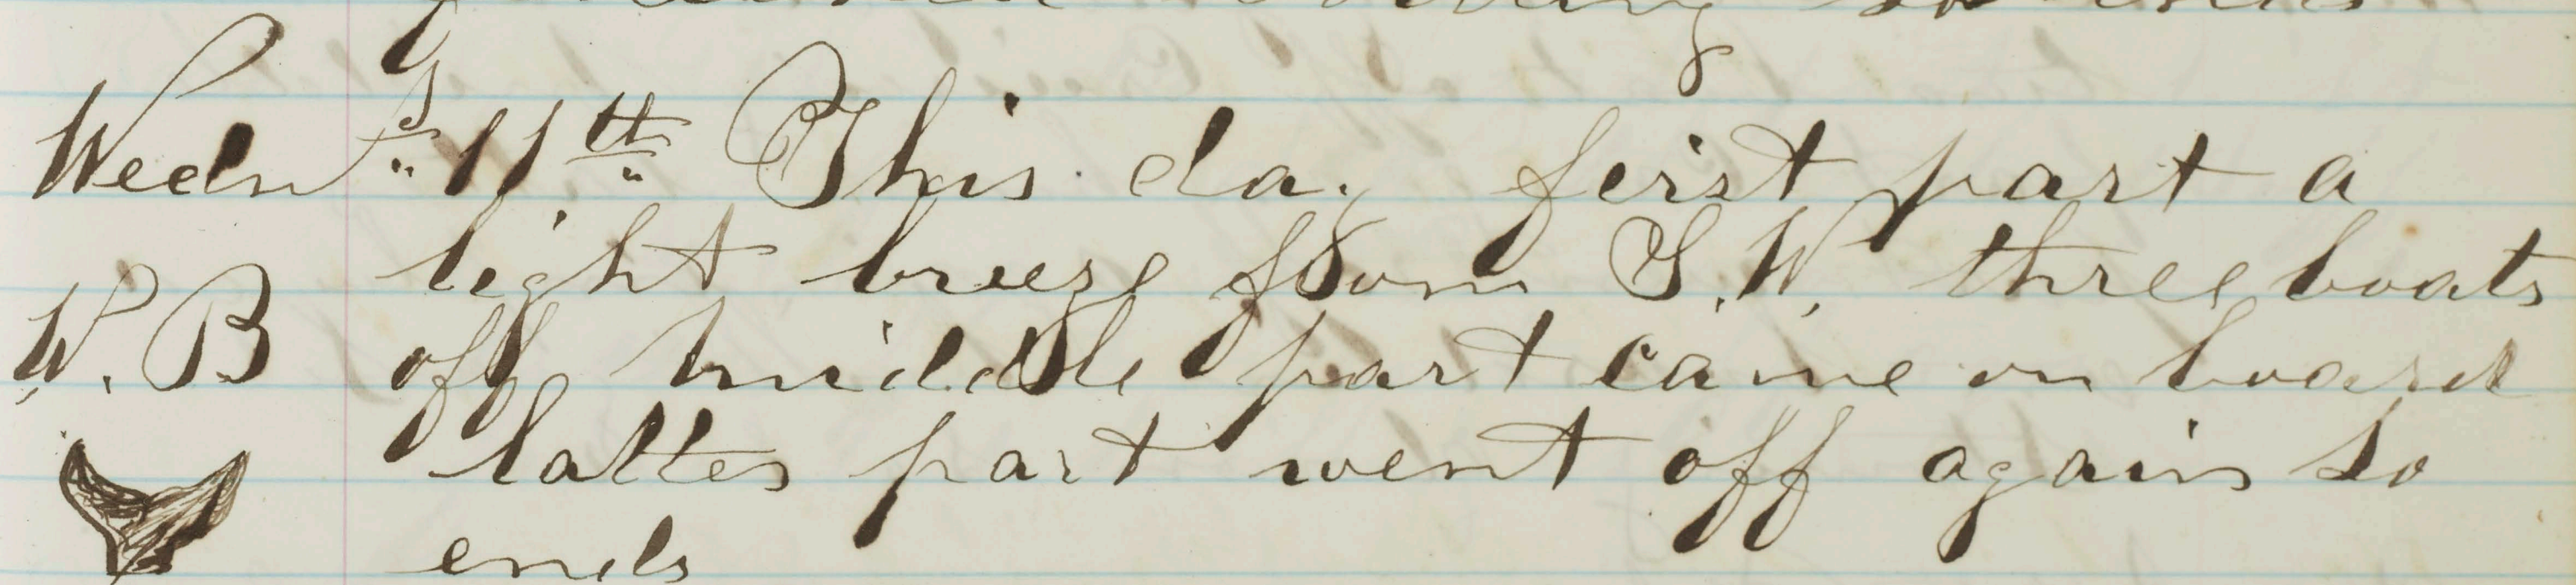 so ends
Wedn 11th This day first part a
light breeze from S.W. three boats
W. B off middle part came on board
latter part went off again so
ends